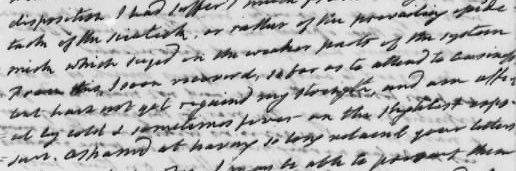 disposition I had suffer'd much from
tack of the sciatick, or rather of the prevailing epide
mick which siezed on the weaker parts of the system
From this, I soon recovered, so far as to attend to business
but have not yet regained my strength, and am affec
ed by cold & sometimes fever on the slightest expo
sure. ashamed at having so long retained your letters
I may be able to peruse them